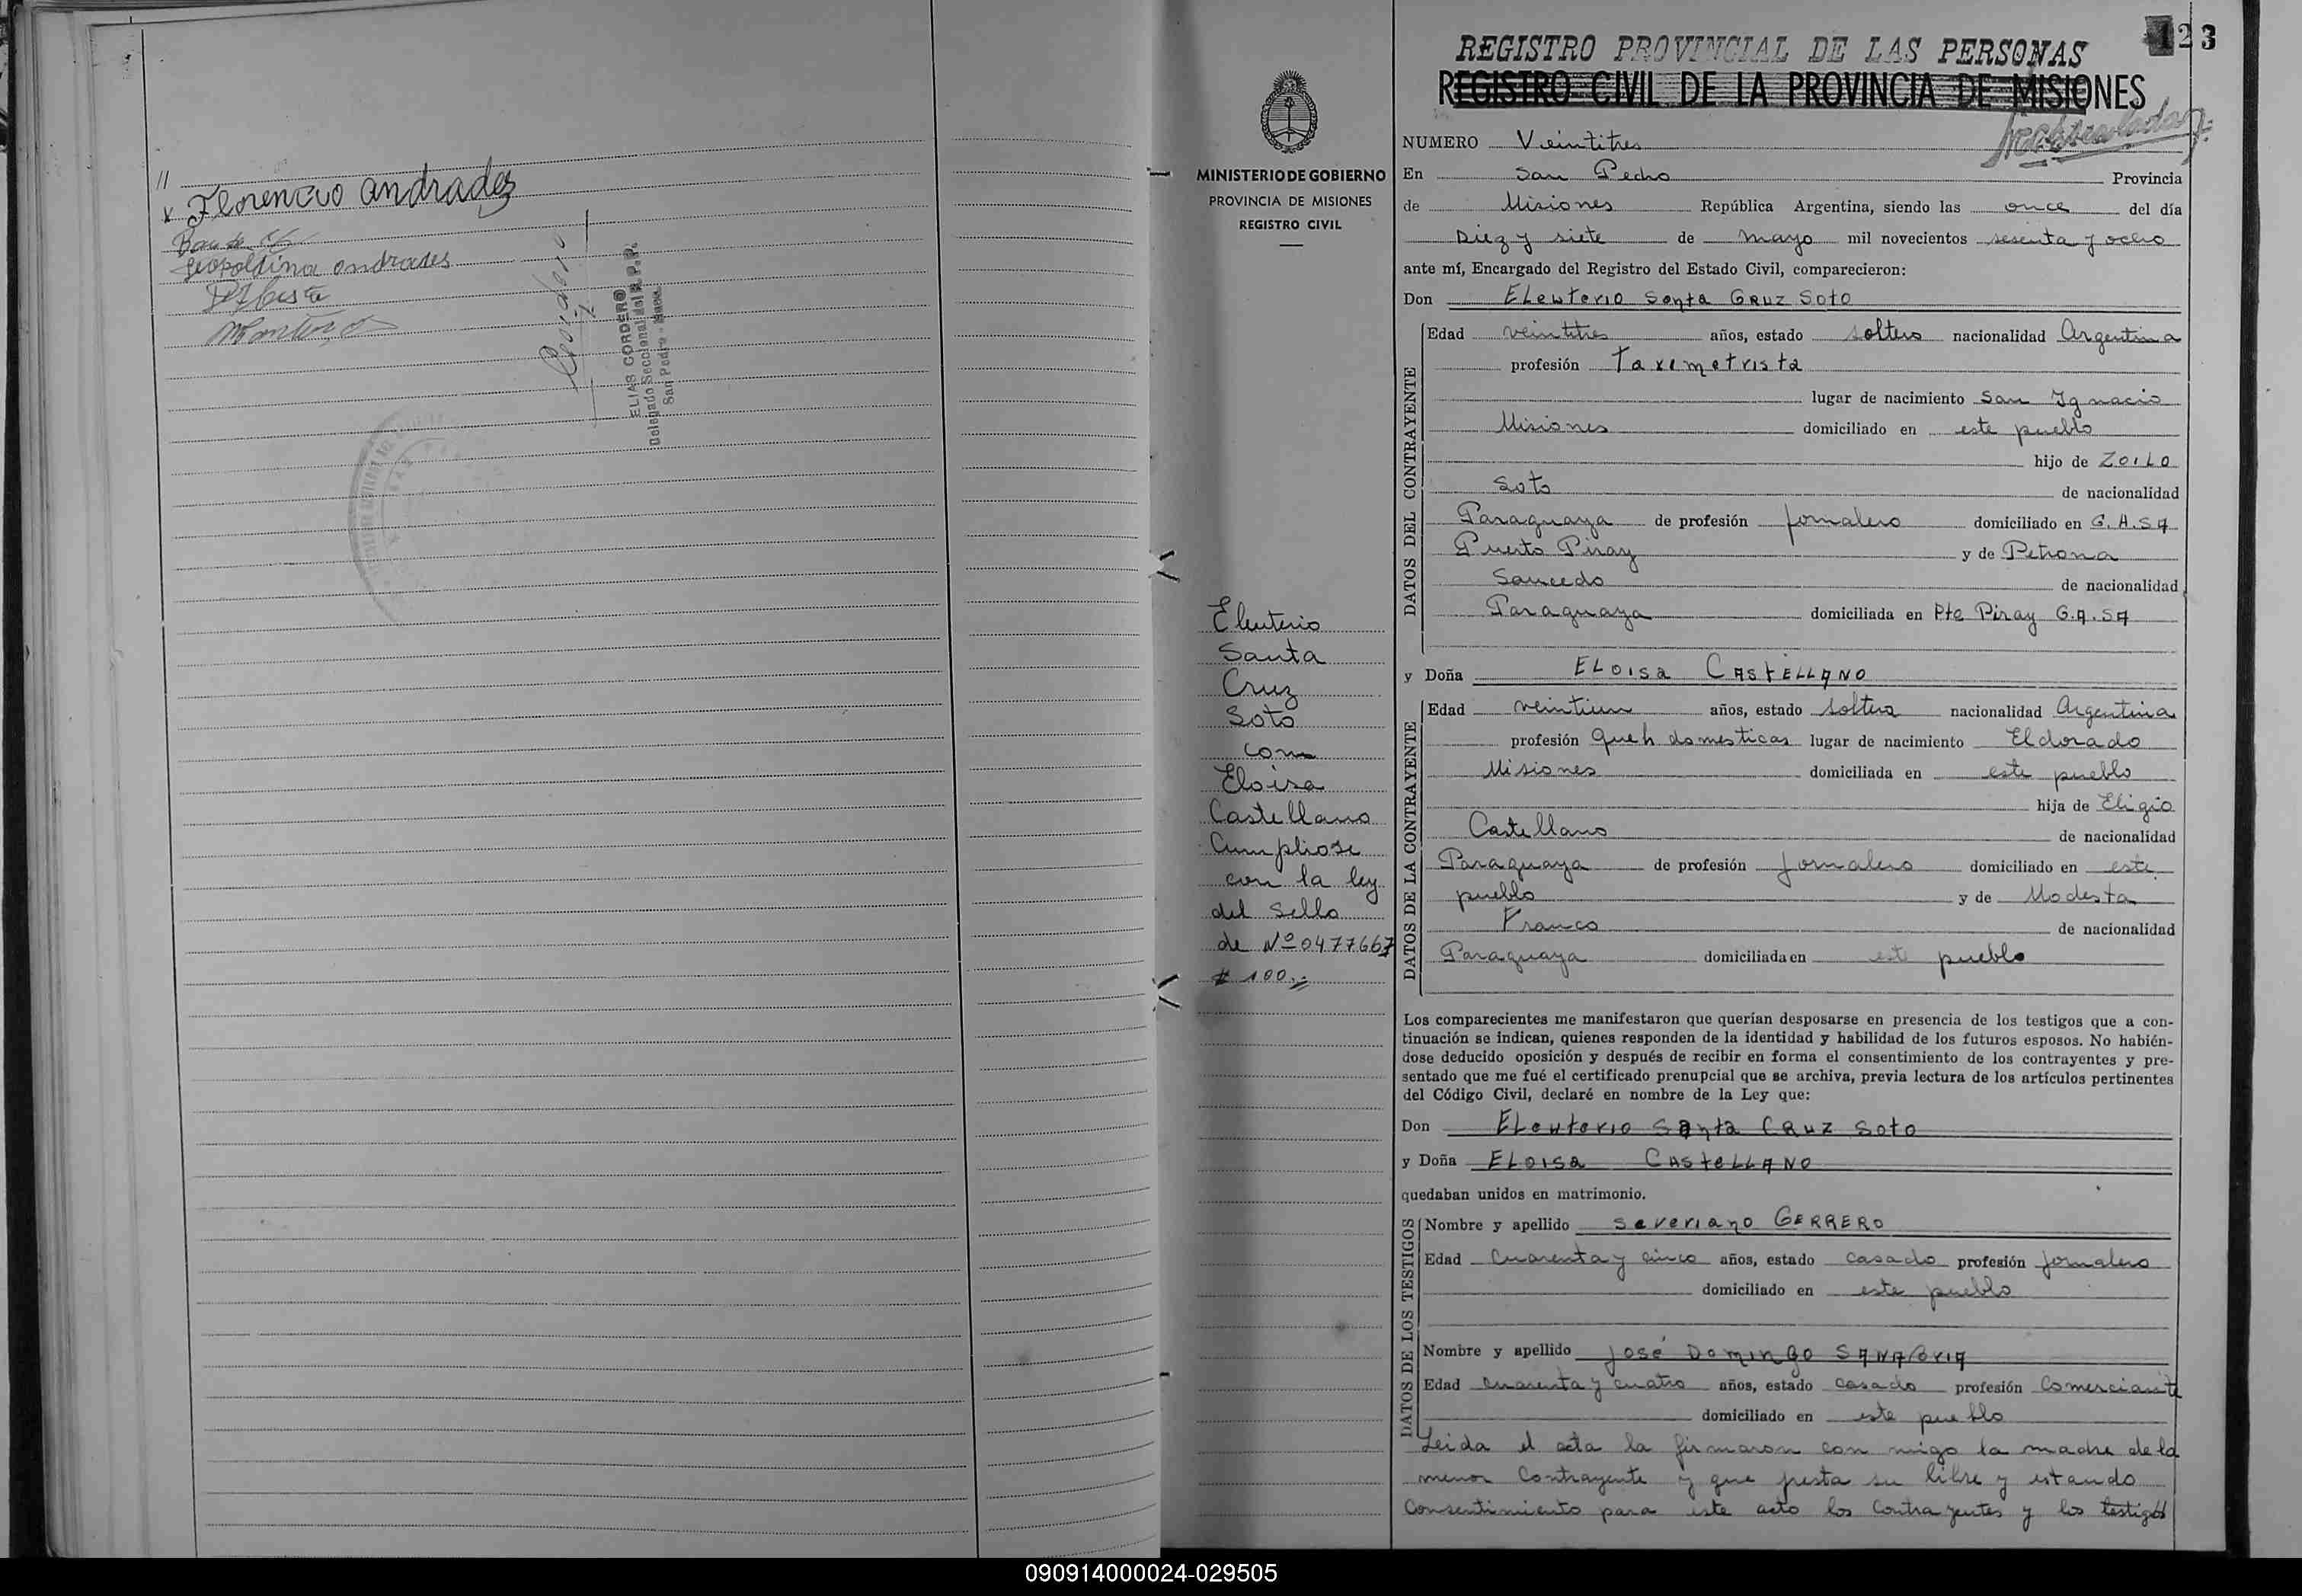 //
x Florencio Andradez
Leopoldina Andrades
ELIAS CORDERO
Delegado Seccional del R.P.P.
San Pedro - Mnes.
123
REGISTRO PROVINCIAL DE LAS PERSONAS
REGISTRO CIVIL DE LA PROVINCIA DE MISIONES
MINISTERIO DE GOBIERNO
PROVINCIA DE MISIONES
REGISTRO CIVIL
Eleuterio
Santa
Cruz
Soto
con
Eloisa
Castellano
Cumpliose
con la ley
del Sello
de Nº 0477667
$ 100.=
NUMERO Veintitres
En San Pedro Provincia
de Misiones República Argentina, siendo las once del día
Diez y siete de mayo mil novecientos sesenta y ocho
ante mí, Encargado del Registro del Estado Civil, comparecieron:
Don ELeuterio Santa CRUZ Soto
DATOS DEL CONTRAYENTE
Edad veintitres años, estado soltero nacionalidad Argentina
profesión Taximetrista
lugar de nacimiento San Ignacio
Misiones domiciliado en este pueblo
hijo de ZOILO
Soto de nacionalidad
Paraguaya de profesión Jornalero domiciliado en C.A.SA
Puerto Piray y de Petrona
Saucedo de nacionalidad
Paraguaya domiciliada en Pto Piray C.A.SA
y Doña ELOISA CASTELLANO
DATOS DE LA CONTRAYENTE
Edad veintiun años, estado soltera nacionalidad Argentina
profesión Queh domesticos lugar de nacimiento Eldorado
Misiones domiciliada en este pueblo
hija de Eligio
Castellano de nacionalidad
Paraguaya de profesión Jornalero domiciliado en este
pueblo y de Modesta
Franco de nacionalidad
Paraguaya domiciliada en este pueblo
Los comparecientes me manifestaron que querían desposarse en presencia de los testigos que a con-
tinuación se indican, quienes responden de la identidad y habilidad de los futuros esposos. No habién-
dose deducido oposición y después de recibir en forma el consentimiento de los contrayentes y pre-
sentado que me fué el certificado prenupcial que se archiva, previa lectura de los artículos pertinentes
del Código Civil, declaré en nombre de la Ley que:
Don ELeuterio Santa CRUZ Soto
y Doña ELOISA CASteLLANO
quedaban unidos en matrimonio.
DATOS DE LOS TESTIGOS
Nombre y apellido Severiano GERRERO
Edad Cuarenta y cinco años, estado casado profesión Jornalero
domiciliado en este pueblo
Nombre y apellido José Domingo SANABRIA
Edad cuarenta y cuatro años, estado casado profesión Comerciante
domiciliado en este pueblo
Leida el acta la firmaron con migo la madre de la
menor Contrayente y que presta su libre y estando
Consentimiento para este acto los Contrayentes y los testigos
090914000024-029505